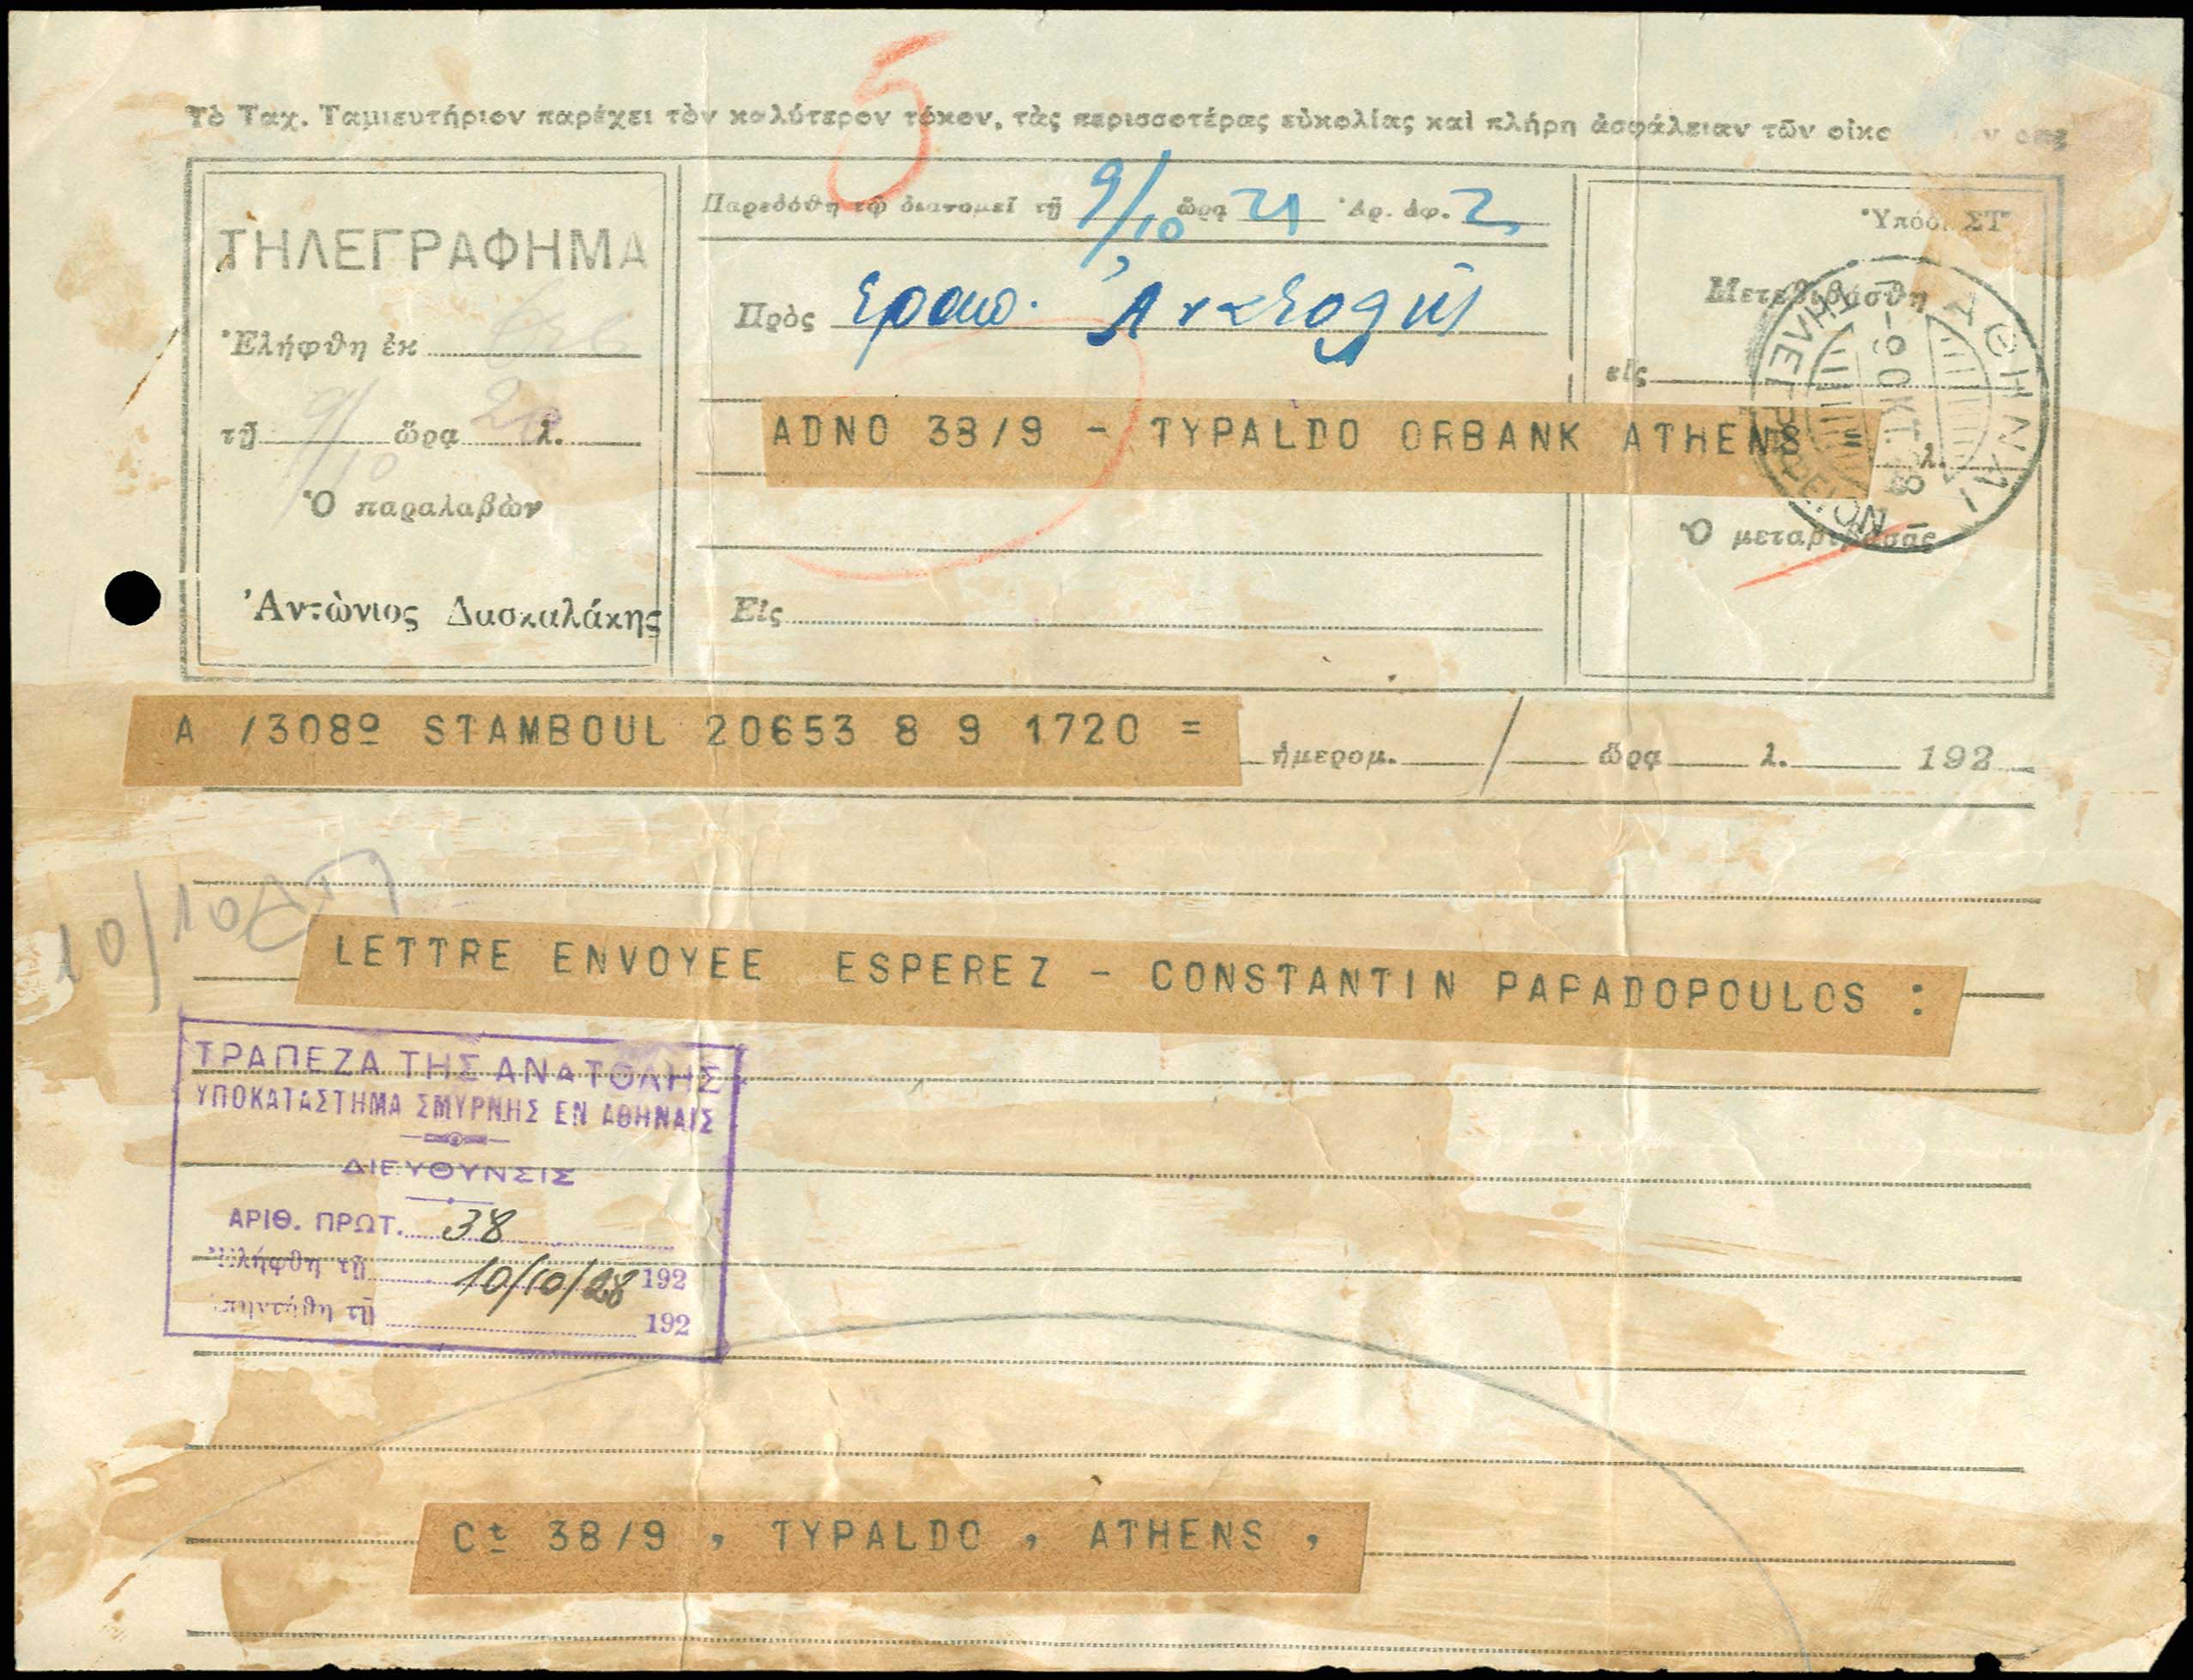 5
Τὸ Ταχ. Ταμιευτήριον παρέχει τὸν καλύτερον τόκον, τὰς περισσοτέρας εὐκολίας καὶ πλήρη ἀσφάλειαν τῶν
ΤΗΛΕΓΡΑΦΗΜΑ
Ἐλήφθη ἐκ
τῇ 9/10 ὥρα 20 λ.
Ὁ παραλαβὼν
Ἀντώνιος Δασκαλάκης
Παρεδόθη τῷ διανομεῖ τῇ 9/10 ὥρα 21 Ἀρ. ἀφ. 2
Πρὸς Τραπ. Ἀνατολῆς
ADNO 38/9 - TYPALDO ORBANK ATHENS
Εἰς
Ὑπόδ. ΣΤ
Μετεβιβάσθη
εἰς
λ.
Ὁ μεταβιβάσας
ΑΘΗΝΑΙ
ΤΗΛΕΓΡΑΦΕΙΟΝ
-9 ΟΚΤ. 28
A /308º STAMBOUL 20653 8 9 1720 =
ἡμερομ. / ὥρα λ. 192
10/10
LETTRE ENVOYEE ESPEREZ - CONSTANTIN PAPADOPOULOS :
ΤΡΑΠΕΖΑ ΤΗΣ ΑΝΑΤΟΛΗΣ
ΥΠΟΚΑΤΑΣΤΗΜΑ ΣΜΥΡΝΗΣ ΕΝ ΑΘΗΝΑΙΣ
ΔΙΕΥΘΥΝΣΙΣ
ΑΡΙΘ. ΠΡΩΤ. 38
Ἐλήφθη τῇ 10/10/28 192
τῇ 192
Ct 38/9 , TYPALDO , ATHENS ,